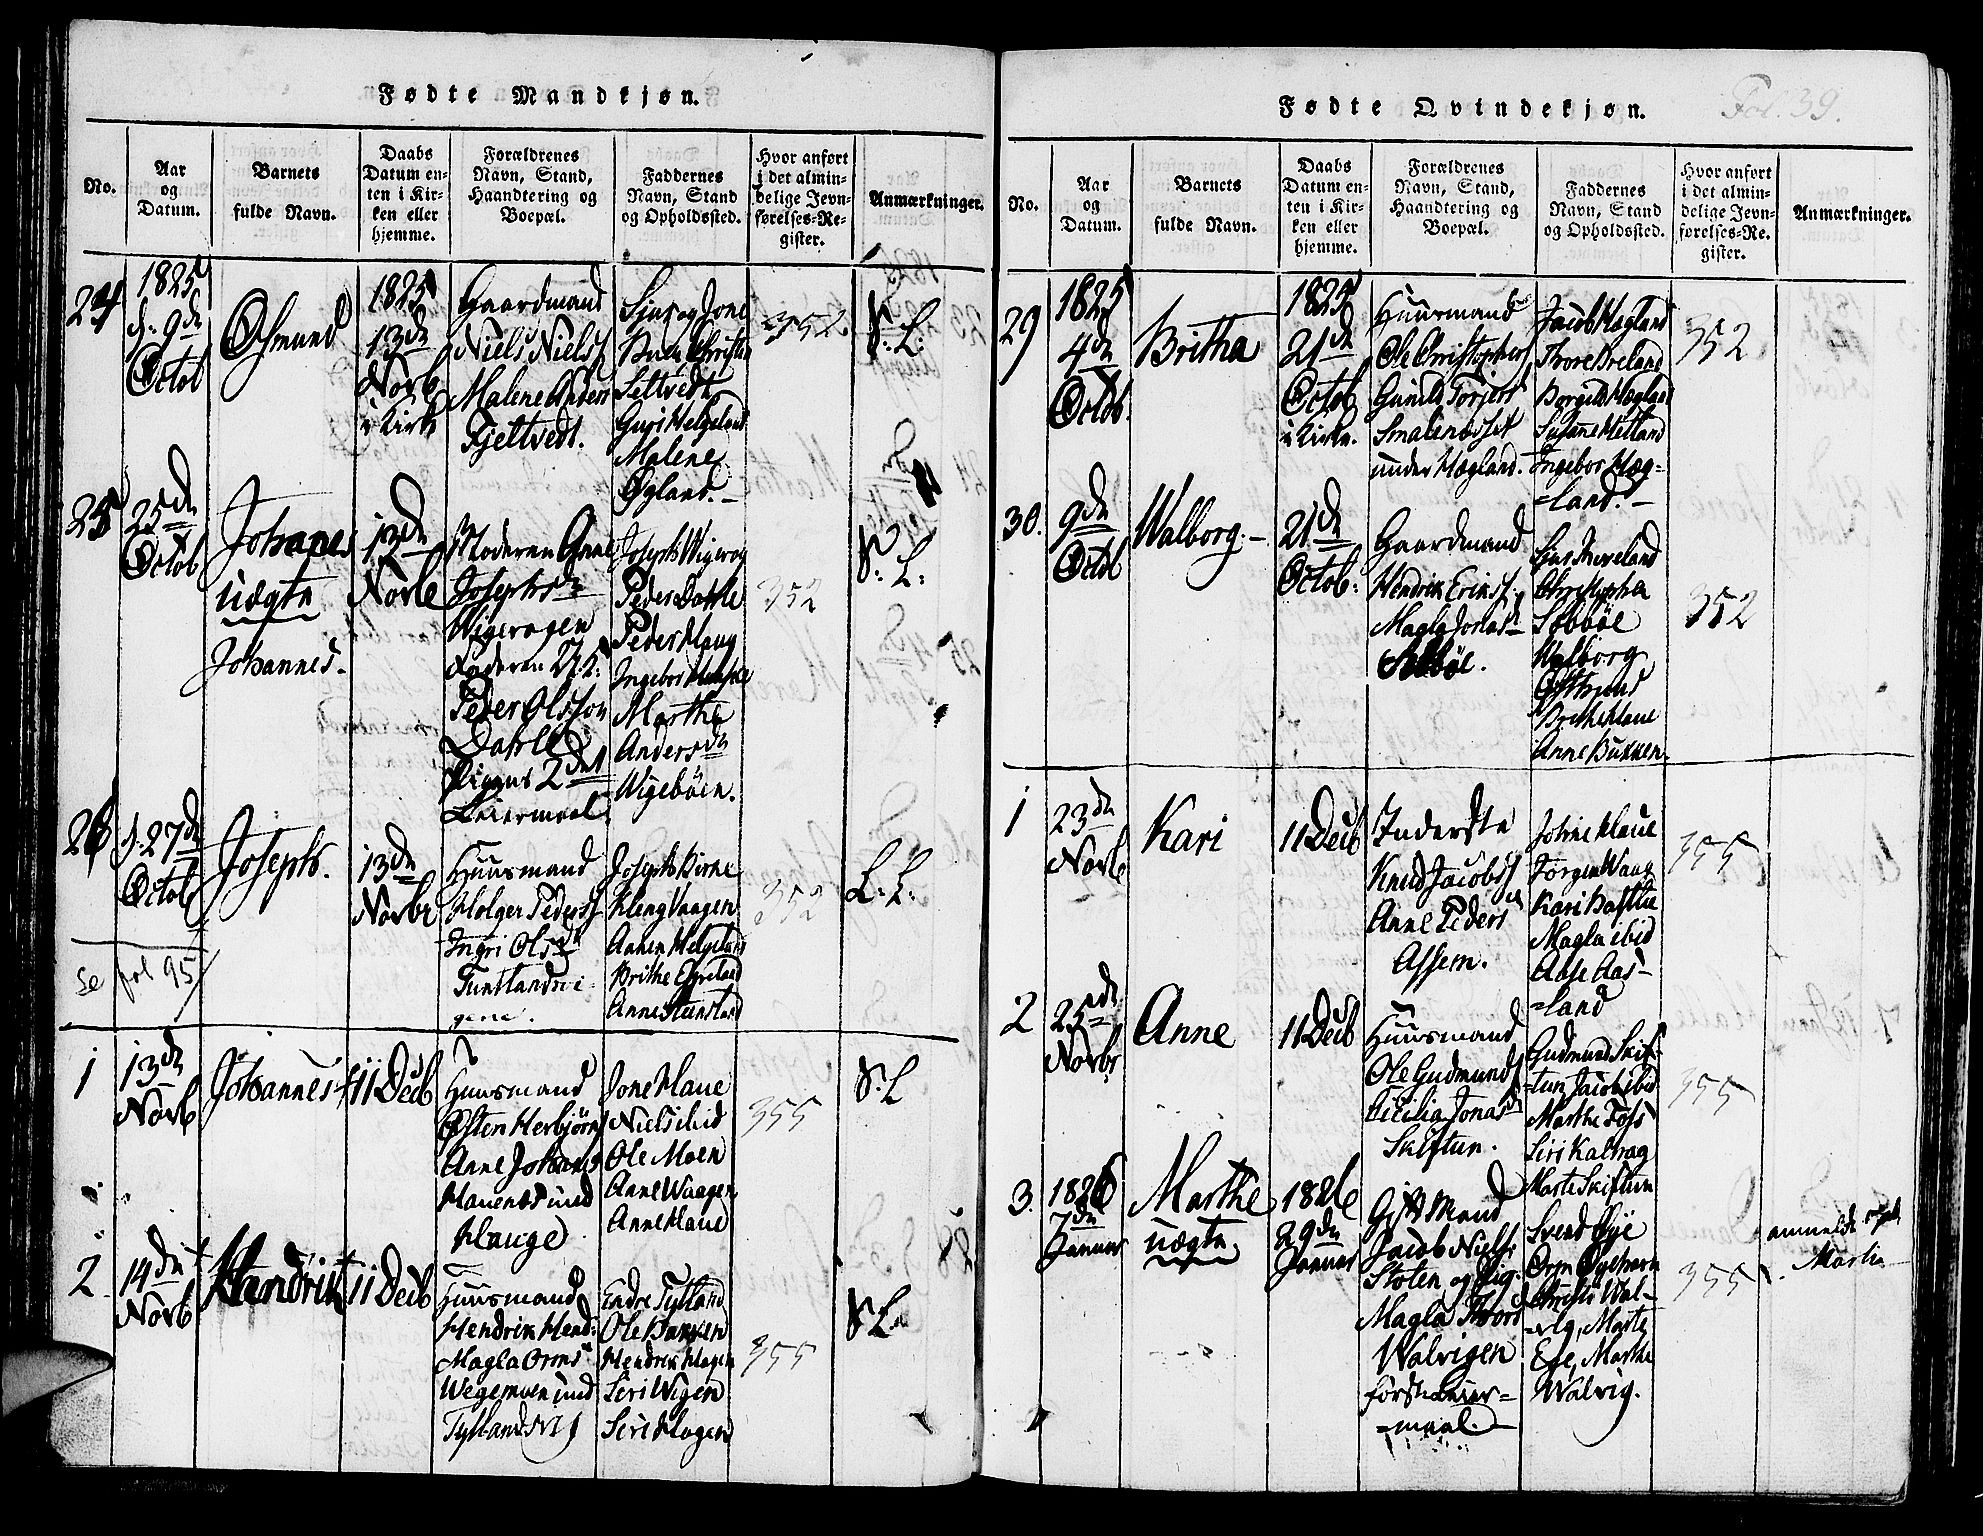 Fødte Mandkjøn.
No.
Aar
og
Datum.
Barnets
fulde Navn.
Daabs
Datum en-
ten i Kir-
ken eller
hjemme.
Forældrenes
Navn, Stand,
Haandtering og
Boepæl.
Faddernes
Navn, Stand
og Opholdssted.
Hvor anført
i det almin-
delige Jevn-
førelses-Re-
gister.
Anmærkninger.
24
1825
d. 9de
Octob
Osmund
1825
13de
Novb
i Kirk
Gaardmand
Niels Niels
Malene Anders
Fjeltvedt.
Sjur og Jone
Christin
Seltvedt
Guri Helgeland
Malene
Øgland.
352
V: L:
25
25de
Octob
Johanes
uægte
Johannes.
13de
Novb
Moderen Anne
Josephsd
Wigevogen
Faderen
Peder Olsson
Dahle
Pigens 2det
Leiermaal
Joseph Wigevog
Peder Dahle
Peder Haug
Ingebor
Marthe
Andersd
Wigebøen.
352
V: L:
26
d. 27de
Octob
Joseph.
13de
Novbr
Huusmand
Holger Peders
Ingri Olsd
Tuntlandsvi-
gene.
Joseph Birke
Kleng Vaagen
Annen Helgeland
Brithe Egeland
Anne Tuntland
352
L: L:
Se fol 95
1
13de
Novb
Johannes
11 Decb
Huusmand
Østen Herbjørn
Anne Johans
Haueneset und
Hauge
Jone Haue
Niels ibid
Ole Moen
Anne Waagen
Anne Haue
355
V: L
2
14de
Novb
Hendrik
11 Decb
Huusmand
Hendrik Hend:
Magla Orms
Wegemoen und
Tytland
Endre Tytland
Ole Bakken
Hendrik Hagen
Siri Wigen
Siri Hagen
355
V L.
Fødte Qvindekjøn.
Fol. 39.
No.
Aar
og
Datum.
Barnets
fulde Navn.
Daabs
Datum en-
ten i Kir-
ken eller
hjemme.
Forældrenes
Navn, Stand,
Haandtering og
Boepæl.
Faddernes
Navn, Stand
og Opholdssted.
Hvor anført
i det almin-
delige Jevn-
førelses-Re-
gister.
Anmærkninger.
29
1825
4de
Octob.
Britha
1825
21de
Octob
i Kirke.
Huusmand
Ole Christophers
Gunild Torjers
Smalenæsset
under Hægland.
Jacob Hægland
Thore Breland
Borgild Hægland
Susanne Hetland
Ingebor Hæg-
=land.
352
30.
9de
Octob
Walborg.
21de
Octob.
Gaardmand
Hendrik Erikss.
Magla Jonasd
Sæbøe.
Christopher
Sæbøe
Walborg
Østhuus
Brithe Haue
Anne Bakken.
352
1
23de
Novb
Kari
11 Decb
Inderste
Knud Jacobs
Anne Peders
Assem.
Johne Haue
Jørgen Waag
Kari
Magla ibid
Aase Aas-
=land
355
2
25de
Novbr
Anne
11 Decb
Huusmand
Ole Gudmunds
Cecilia Jonasd
Skiftun.
Gudmund Skif-
=tun Jacob ibid
Marthe Foss
Siri Kalvag
Marte Skiftun
355
3.
1826
7de
Januar
Marthe
uægte
1826
29de
Januar
Gift Mand
Jacob Niels
Stolen og Pig:
Magla Thors
Walvigen
første Leier-
=maal.
Svend Øye
Orm
Christi Wal-
=vig, Marte
Eye, Marthe
Walvig.
355
anmeldt
Martin